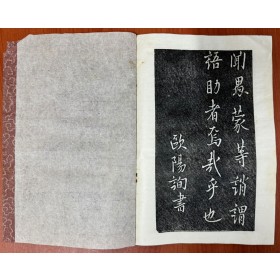 聞愚蒙等誚謂
語助者焉哉乎也
歐陽詢書